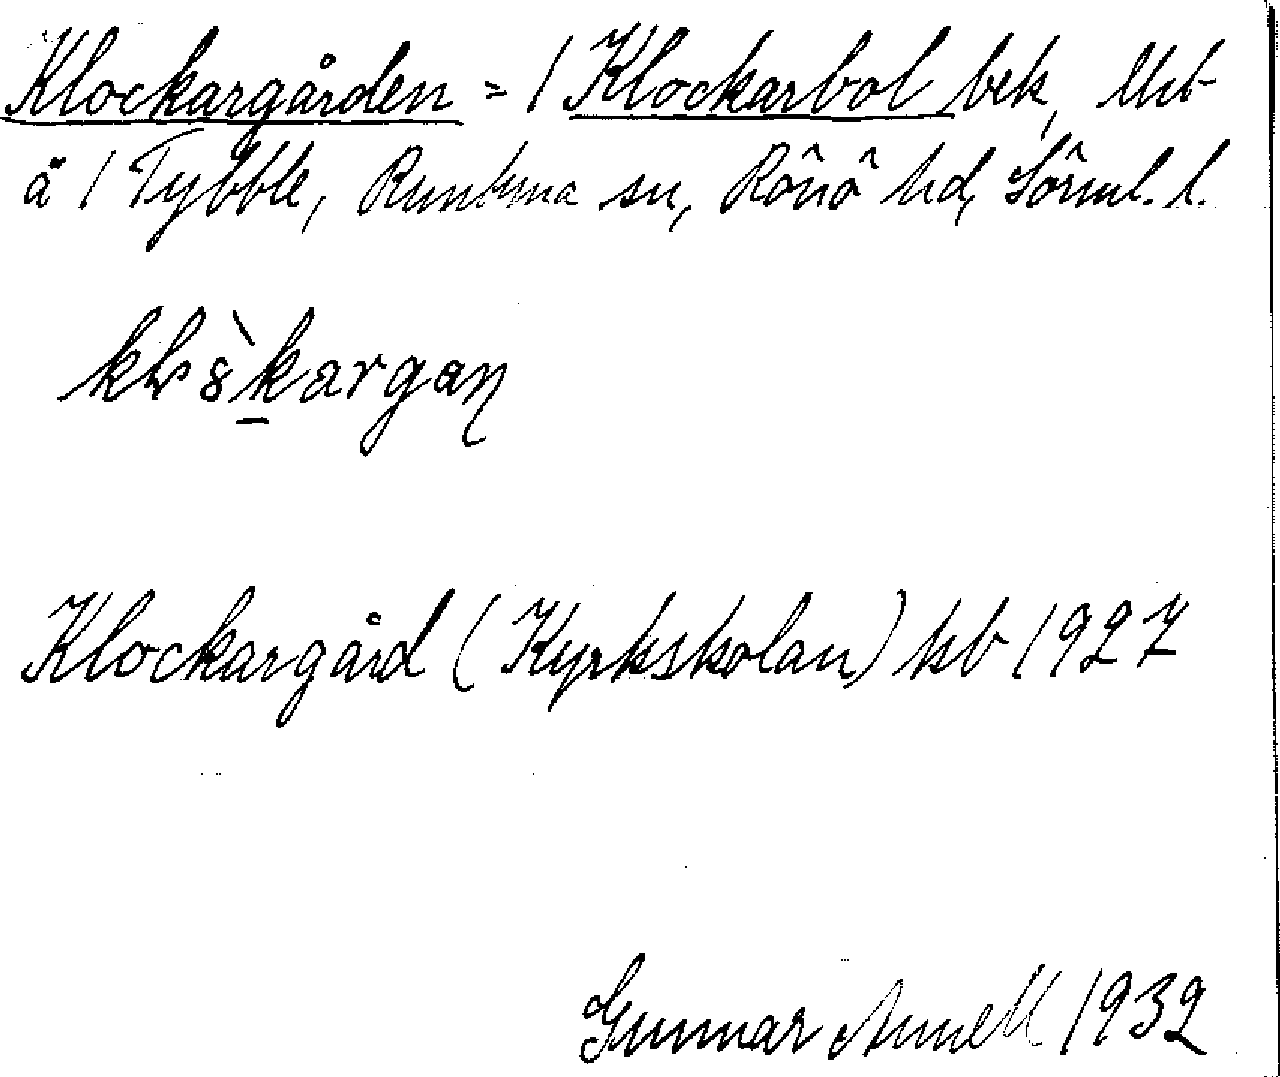 Klockargården = 1 Klockarbol bek, Utb
å 1 Tybble, Runtuna sn, Rönö hd, Sörml. l.
Klockargård (Kyrkskolan) kb 1927
Gunnar Annell 1932